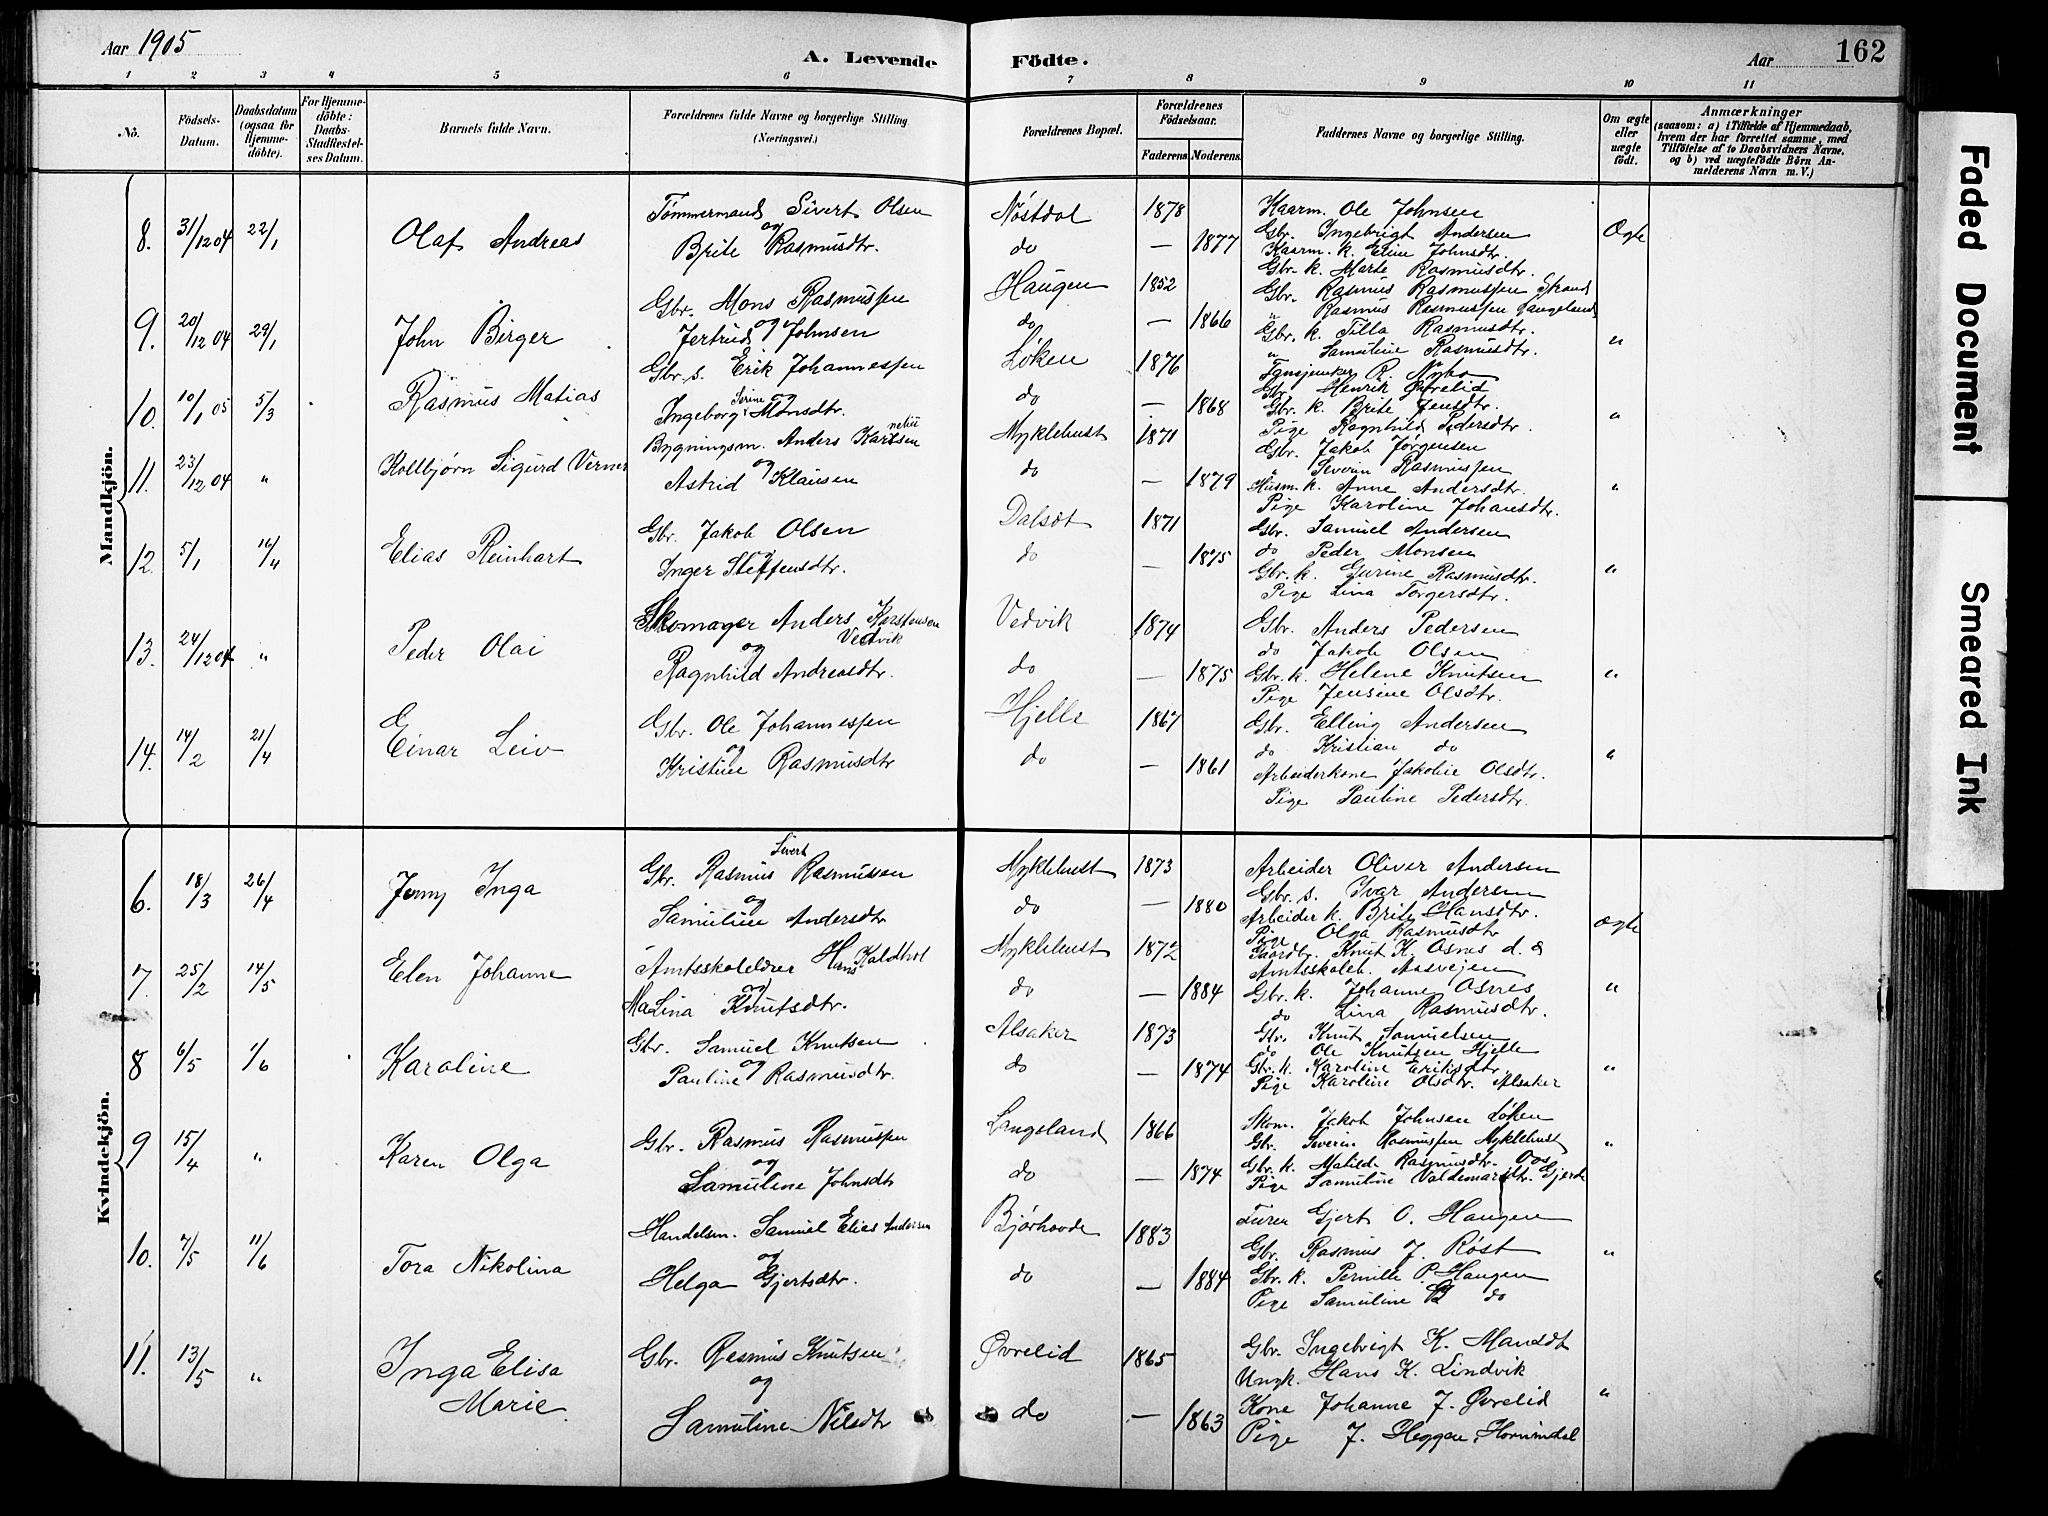 Aar 1905
A. Levende Födte.
Aar 162
1 2 3 4 5 6 7 8 9 10 11
No.
Födsels-Datum.
Daabsdatum (ogsaa for Hjemme-döbte).
For Hjemme-döbte: Daabs-Stadfæstel-ses Datum.
Barnets fulde Navn.
Forældrenes fulde Navne og borgerlige Stilling (Næringsvei.)
Forældrenes Bopæl.
Forældrenes Födselsaar.
Faderens. Moderens.
Faddernes Navne og borgerlige Stilling.
Om ægte eller uægte født.
Anmærkninger
(saasom: a) i Tilfælde af Hjemmedaab, hvem der har forrettet samme, med Tilföielse af to Daabsvidners Navne, og b) ved uægtefödte Börn An-melderens Navn m. V.)
Mandkjön.
8. 31/12 04 22/1 Olaf Andreas
Tømmermand Sivert Olsen
og
Brite Rasmusdtr.
Nøstdal 1878
do — 1877
Kaarm. Ole Johnsen
Gbr. Ingebrigt Andersen
Kaarm. k. Eline Johnsdtr.
Gbr. k. Marte Rasmusdtr.
Ægte
9. 20/12 04 29/1 John Birger
Gbr. Mons Rasmussen
og
Jertrud Johnsen
Haugen 1852
do — 1866
Gbr. Rasmus Rasmussen Strand
" Rasmus Rasmussen Langeland
Gbr. k. Tilla Rasmusdtr.
" Samuline Rasmusdtr.
"
10. 10/1 05 5/3 Rasmus Matias
Gbr. s. Erik Johannessen
Serine og
Ingeborg Monsdtr.
Løken 1876
do — 1868
R. Myho
Gbr. Henrik Øvrelid
Gbr. k. Brite Jensdtr.
Pige Ragnhild Pedersdtr.
"
11. 23/12 04 " Kolbjørn Sigurd Verner
Bygningsm. Anders Karlsen
og
Astrid Klausen
Myklebust 1871
do — 1879
Gbr. Jakob Jørgensen
" Severin Rasmussen
Husm. k. Anne Andersdtr.
Pige Karoline Johansdtr.
"
12. 5/1 16/4 Elias Reinhart
Gbr. Jakob Olsen
og
Inger Steffensdtr.
Dalsdt 1871
do — 1875
Gbr. Samuel Andersen
do Peder Monsen
Gbr. k. Gurine Rasmusdtr.
Pige Lina Torgersdtr.
"
13. 24/12 04 " Peder Olai
Skomager Anders Karstensen
Vedvik
og
Ragnhild Andreasdtr.
Vedvik 1874
do — 1875
Gbr. Anders Pedersen
do Jakob Olsen
Gbr. k. Helene Knutsen
Pige Jensine Olsdtr.
"
14. 14/2 21/4 Einar Leiv
Gbr. Ole Johannessen
og
Kristine Rasmusdtr
Hjelle 1867
do — 1861
Gbr. Elling Andersen
do Kristian do
Arbeiderkone Jakobie Olsdtr.
Pige Pauline Pedersdtr.
"
Kvindekjön.
6. 18/3 26/4 Jenny Inga
Sivert
Gbr. Rasmus Rasmussen
og
Samuline Andersdtr
Myklebust 1873
do — 1880
Arbeider Oliver Andersen
Gbr. s. Ivar Andersen
Arbeider k. Brite Hansdtr.
Pige Olga Rasmusdtr
Ægte
7. 25/2 14/5 Elen Johanne
Amtsskolelærer Hans Kaldhol
og
MaLina Knutsdtr.
Myklebust 1872
do — 1884
Gaardbr. Knut K. Osnes d. æ
Amtsskoleb. Aasvejen
Gbr. k. Johanne Osnes
do Lina Rasmusdtr.
"
8 6/5 1/6 Karoline
Gbr. Samuel Knutsen
og
Pauline Rasmusdtr.
Alsaker 1873
do — 1874
Gbr. Knut Samuelsen
do Ole Knutsen Hjelle
Gbr. k. Karoline Eriksdtr.
Pige Karoline Olsdtr. Alsaker
"
9 15/4 " Karen Olga
Gbr. Rasmus Rasmussen
og
Samuline Johnsdtr
Langeland 1866
do — 1874
Skom. Jakob Johnsen Løken
Gbr. Severin Rasmussen Myklebust
Gbr. k. Matilde Rasmusdtr. Oos
Pige Samuline Valdemarsdtr. Gjerde
"
10. 7/5 11/6 Tora Nikolina
Handelsm. Samuel Elias Andersen
og
Helga Gjertsdtr.
Bjørhovde 1883
do — 1884
Gjert O. Haugen
Gbr. Rasmus J. Røst
Gbr. k. Pernille P. Haugen
Pige Samuline do
"
11. 13/5 " Inga Elisa
Marie
Gbr. Rasmus Knutsen
og
Samuline Nilsdtr
Øvrelid 1865
do — 1863
Gbr. Ingebrigt K. Maurdt
Ungk. Hans K. Lindvik
Kone Johanne J. Øvrelid
Pige J. Heggen, Hornindal
"
Faded Document
Smeared Ink